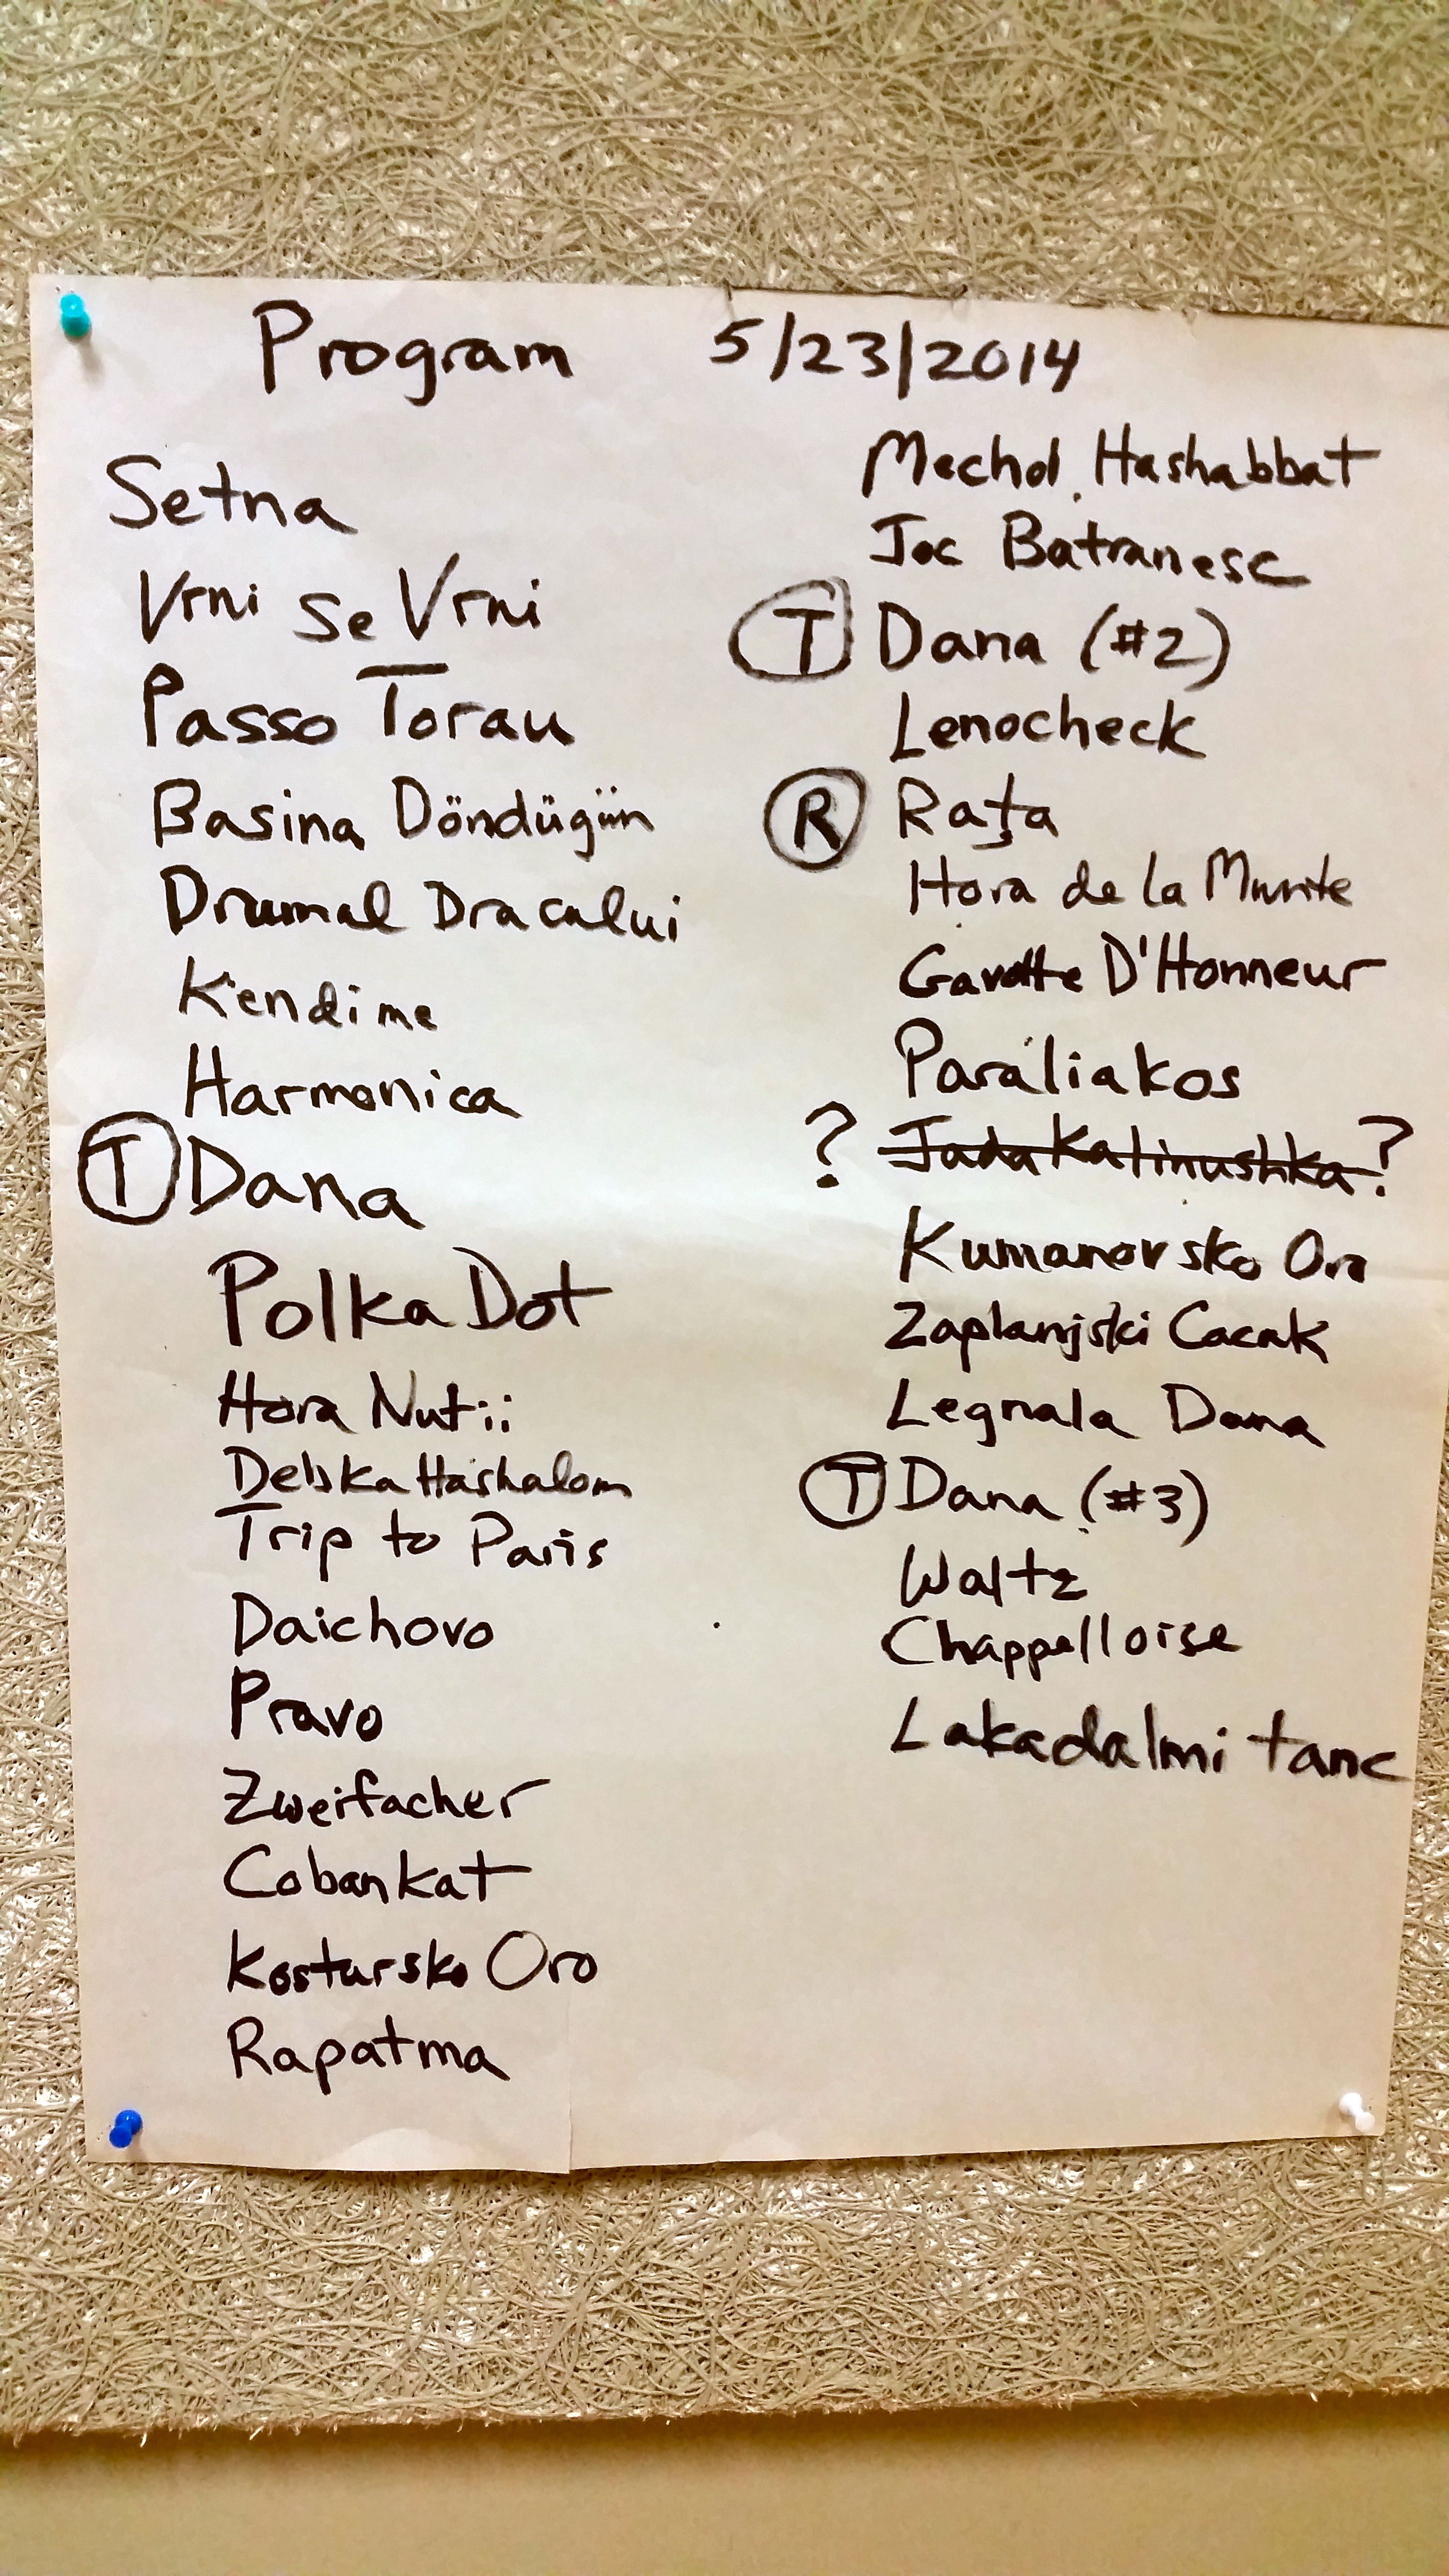 Program 5/23/2014
Setna
Vrni Se Vrni
Passo Torau
Basina Döndügün
Drumul Dracului
Kendime
Harmonica
T Dana
Polka Dot
Hora Nutii
Debka Hashalom
Trip to Paris
Daichovo
Pravo
Zweifacher
Cobankat
Kostursko Oro
Rapatma
Mechol Hashabbat
Joc Batranesc
T Dana (#2)
Lenocheck
R Rața
Hora de la Munte
Gavotte D'Honneur
Paraliakos
? Jada Kalinushka ?
Kumanovsko Oro
Zaplanjski Cacak
Legnala Dana
T Dana (#3)
Waltz
Chappelloise
Lakadalmi tanc